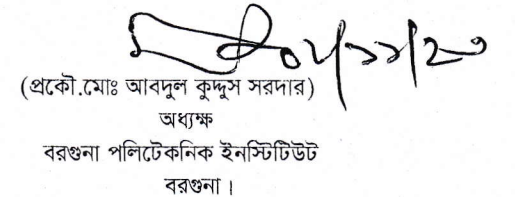 (প্রকৌ.মোঃ আবদুল কুদ্দুস সরদার)
অধ্যক্ষ
বরগুনা পলিটেকনিক ইনস্টিটিউট
বরগুনা ।